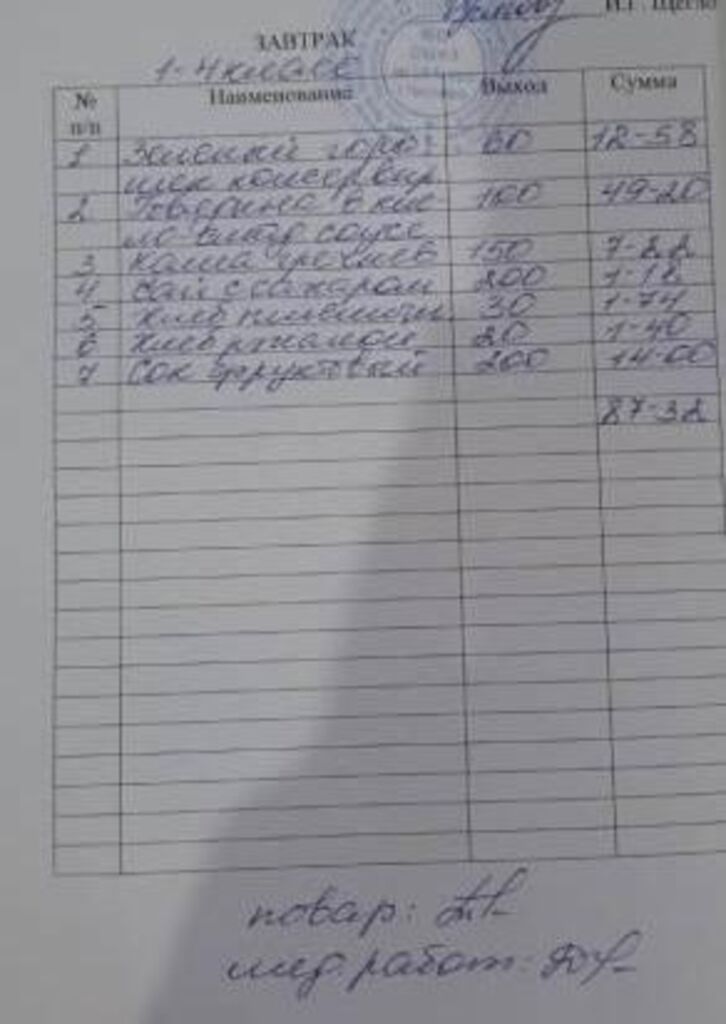 И.Г. Щегло
ЗАВТРАК
1-4 класс
№ п/п Наименования Выход Сумма
1 Зеленый горо 60 12-58
шек консервир
2 Говядина в кис 100 49-20
ло соусе
3 Каша гречнев 150 7-22
4 Чай с сахаром 200 1-18
5 Хлеб пшеничн. 30 1-74
6 Хлеб ржаной 20 1-40
7 Сок фруктовый 200 14-00
87-32
повар:
мед. работ: